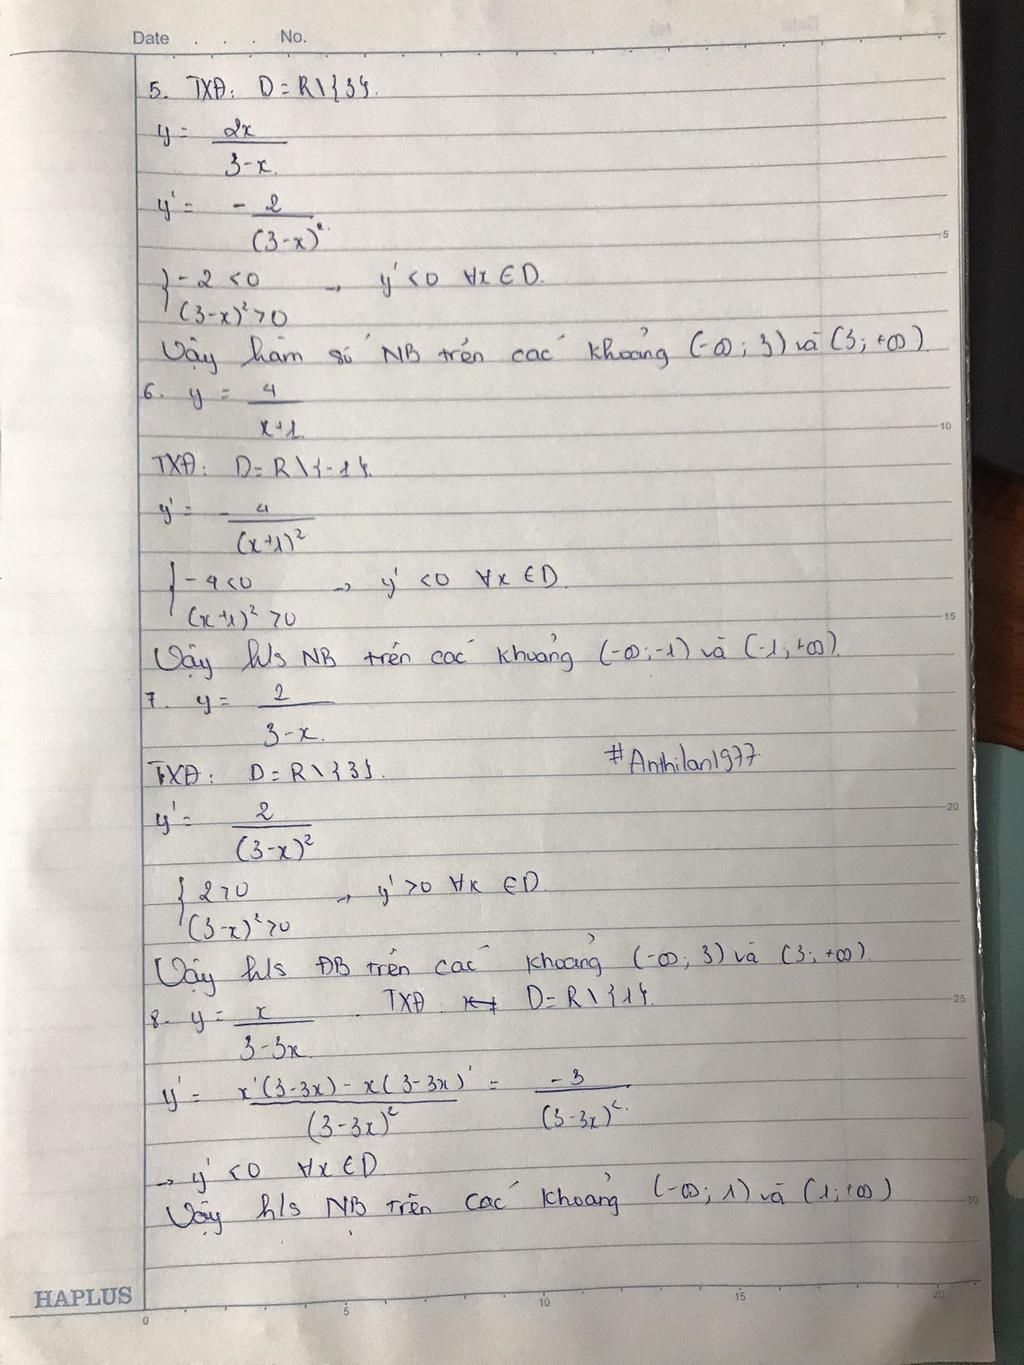 Date . . . No.
5. TXĐ: D = R\{3}.
y = 2x / 3-x
y' = - 2 / (3-x)²
{ -2 < 0 → y' < 0 ∀x ∈ D.
(3-x)² > 0
Vậy hàm số NB trên các khoảng (-∞; 3) và (3; +∞)
6. y = 4 / x+1
TXĐ: D = R\{-1}.
y' = - 4 / (x+1)²
{ -4 < 0 → y' < 0 ∀x ∈ D.
(x+1)² > 0
Vậy h/s NB trên các khoảng (-∞; -1) và (-1; +∞)
7. y = 2 / 3-x
#Anthilan1977
TXĐ: D = R\{3}.
y' = 2 / (3-x)²
{ 2 > 0 → y' > 0 ∀x ∈ D
(3-x)² > 0
Vậy h/s ĐB trên các khoảng (-∞; 3) và (3; +∞)
8. y = x / 3-3x . TXĐ D = R\{1}.
y' = x'(3-3x) - x(3-3x)' / (3-3x)² = -3 / (3-3x)²
→ y' < 0 ∀x ∈ D
Vậy h/s NB trên các khoảng (-∞; 1) và (1; +∞)
HAPLUS
5
10
15
20
25
30
0 5 10 15 20